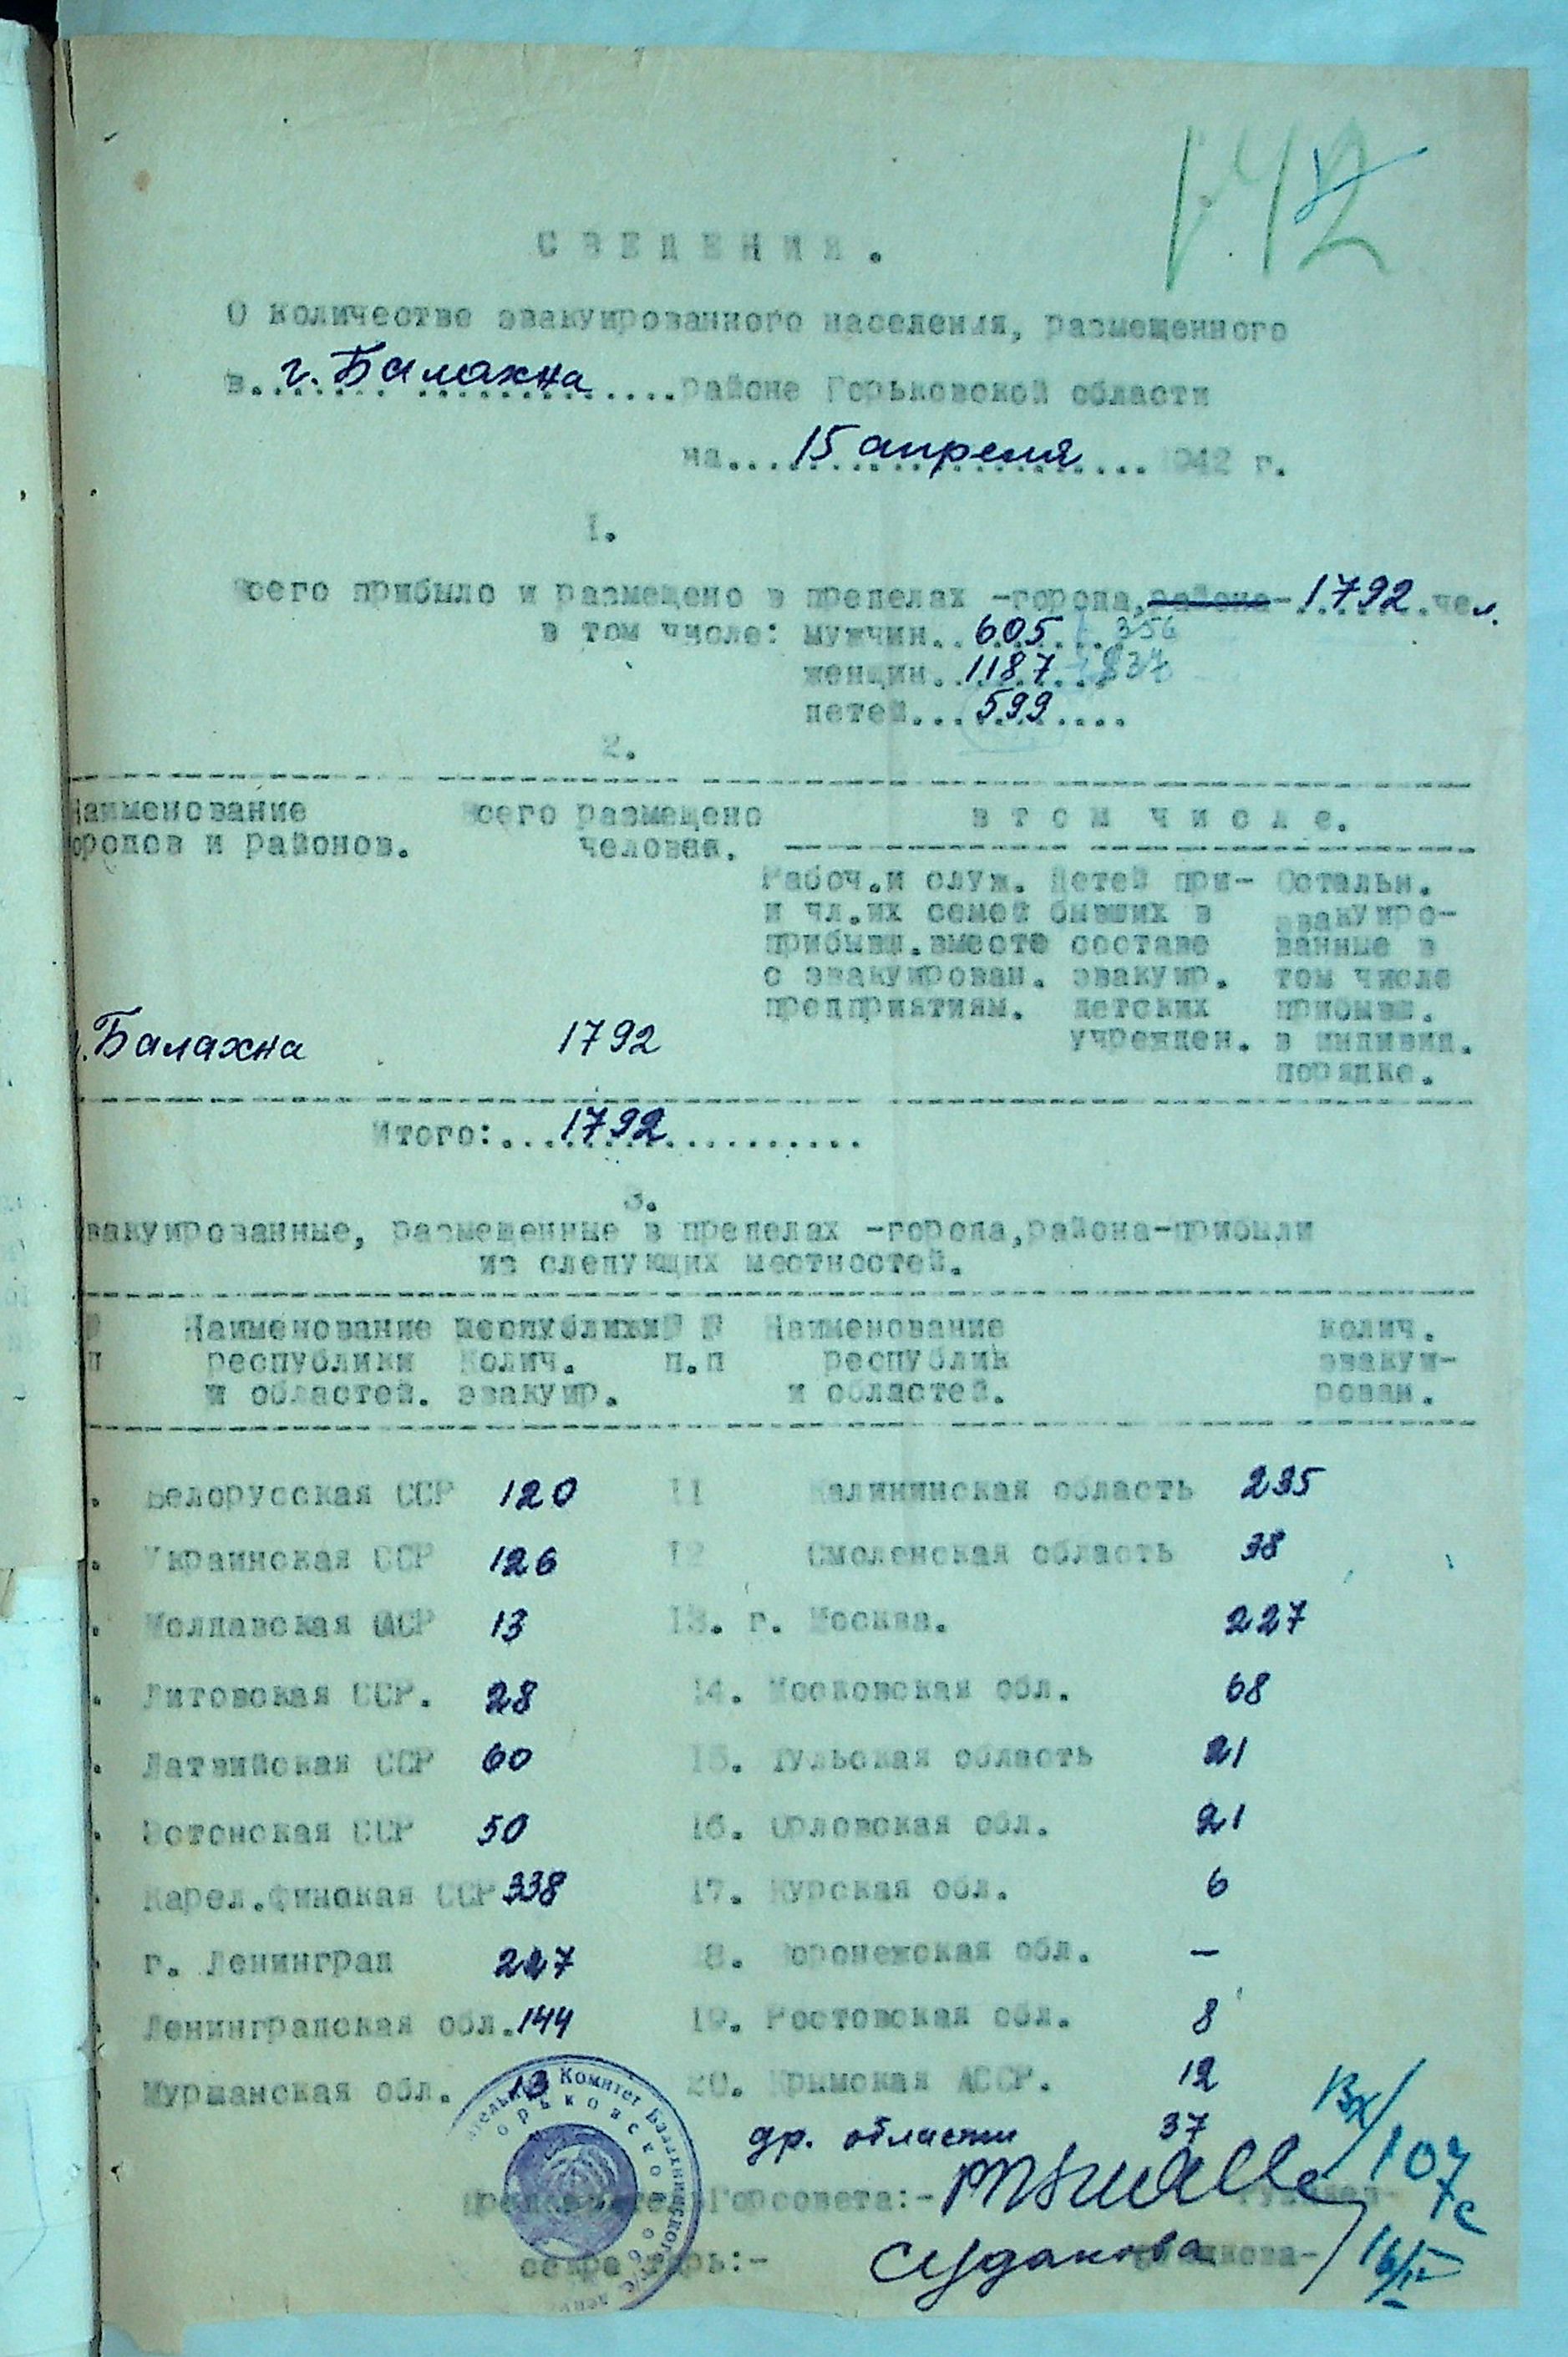 1.42
СВЕДЕНИЯ.
О количестве эвакуированного населения, размещенного
в. г. Балахна районе Горьковской области
на... 15 апреля .... 1942 г.
1.
Всего прибыло и размещено в пределах -города, района- 1792 чел.
в том числе: мужчин.. 605 356
женщин. 1187 837
детей... 599 ....
2.
Наименование Всего размещено в том числе.
городов и районов. человек.
Рабоч.и служ. Детей при- Остальн.
и чл.их семей бывших в эвакуиро-
прибывш.вместе составе ванные в
с эвакуирован. эвакуир. том числе
предприятиям. детских прибывш.
учрежден. в индивид.
порядке.
г. Балахна 1792
Итого:... 1792
3.
Эвакуированные, размещенные в пределах -города,района-прибыли
из следующих местностей.
Наименование республики Наименование колич.
п республики Колич. п.п республик эвакуи-
и областей. эвакуир. и областей. рован.
. Белорусская ССР 120 11 Калининская область 235
. Украинская ССР 126 12 Смоленская область 38
. Молдавская ССР 13 13. г. Москва. 227
. Литовская ССР. 28 14. Московская обл. 68
. Латвийская ССР 60 15. Тульская область 21
. Эстонская ССР 50 16. Орловская обл. 21
. Карел.Финская ССР 338 17. Курская обл. 6
. г. Ленинград 227 18. Воронежская обл. —
. Ленинградская обл. 144 19. Ростовская обл. 8
. Мурманская обл. 13 20. Крымская АССР. 12
др. области 37
Вх/107с
16/IV
Председатель Горсовета:-
секретарь:- Судакова
Комитет Балахнинского
Горьковской